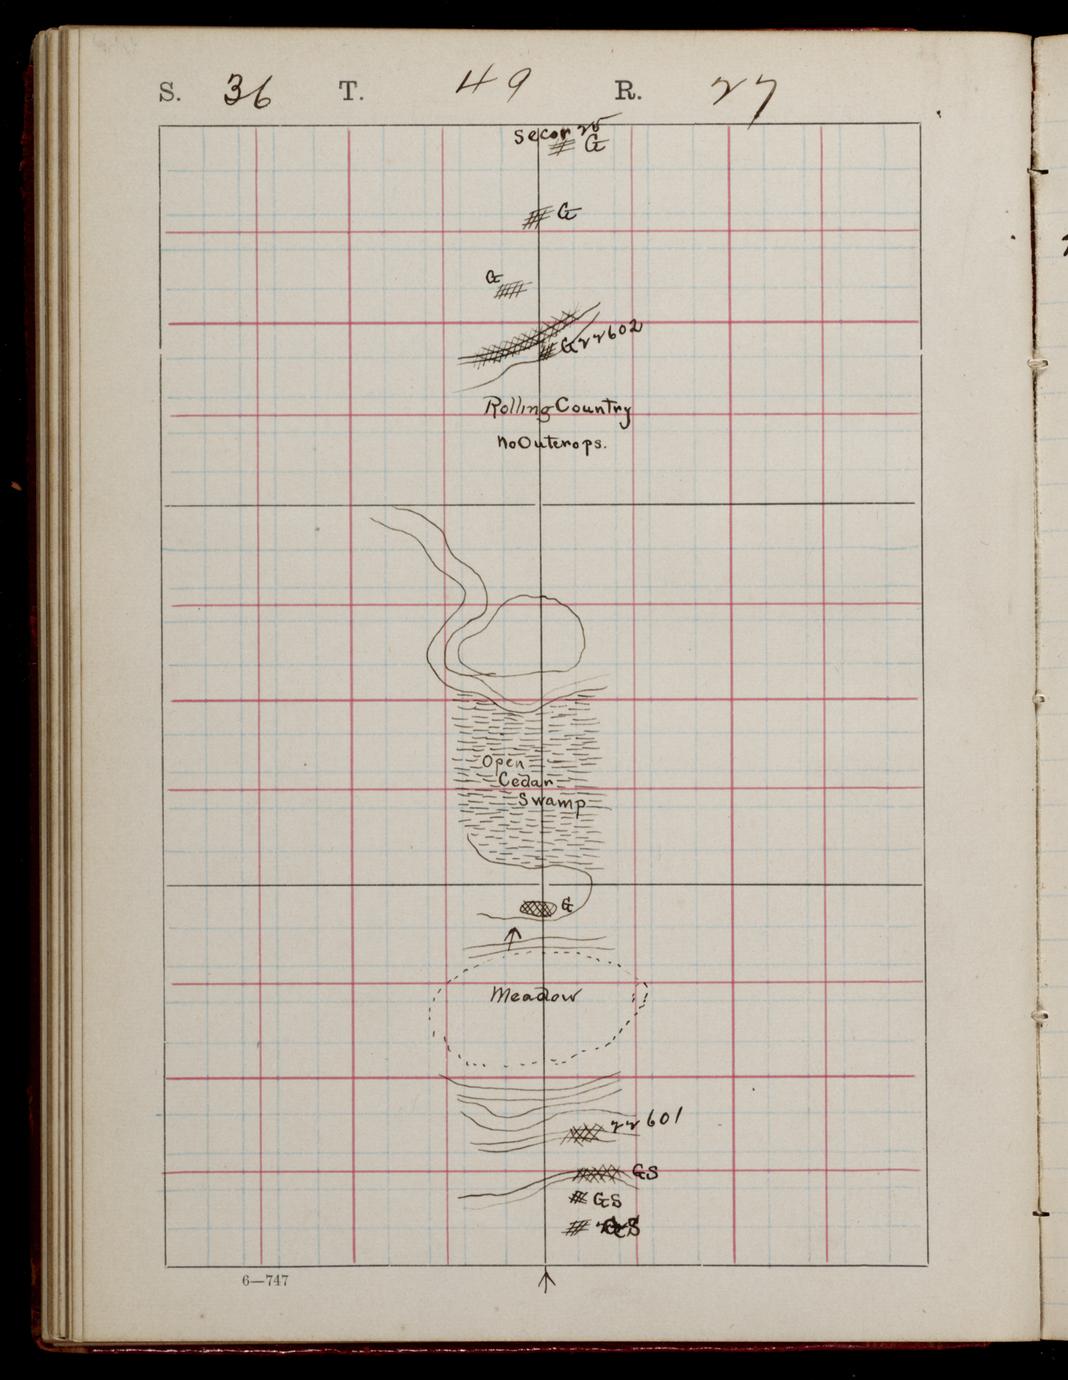 S. 36 T. 49 R. 27
Secor 25
G
G
G
G 22602
Rolling Country
No Outcrops.
Open
Cedar
Swamp
G
Meadow
22601
GS
GS
GS
6—747